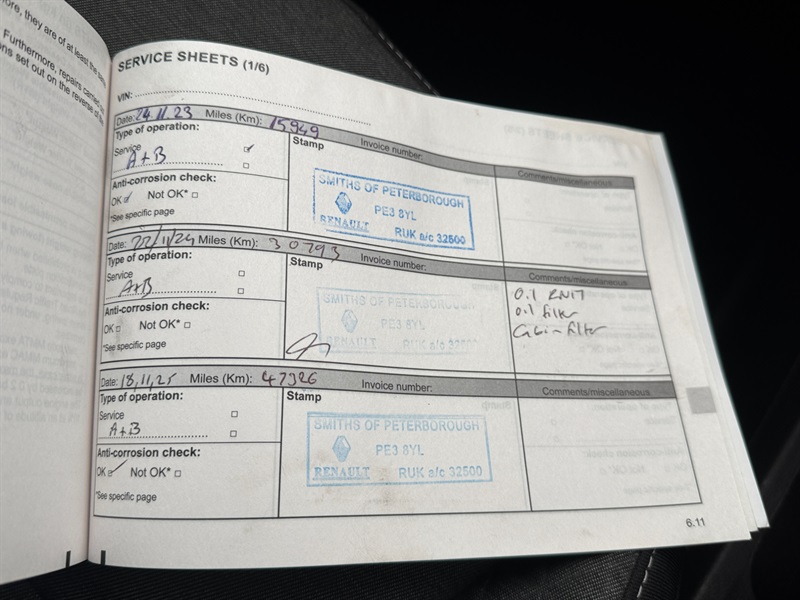 ore, they are of at least the sam
Furthermore, repairs carried
ons set out on the reverse of the
SERVICE SHEETS (1/6)
VIN:
Date: 24.11.23 Miles (Km): 15949 Invoice number:
Comments/miscellaneous
Type of operation:
Stamp
Service
A+B
Anti-corrosion check:
OK Not OK*
*See specific page
SMITHS OF PETERBOROUGH
PE3 8YL
RENAULT RUK a/c 32500
Date: 22/11/24 Miles (Km): 30793 Invoice number:
Comments/miscellaneous
Type of operation:
Stamp
Service
A+B
Anti-corrosion check:
OK Not OK*
*See specific page
SMITHS OF PETERBOROUGH
PE3 8YL
RENAULT RUK a/c 32500
filter
filter
Date: 18,11,25 Miles (Km): 47326 Invoice number:
Comments/miscellaneous
Type of operation:
Stamp
Service
A+B
Anti-corrosion check:
OK Not OK*
*See specific page
SMITHS OF PETERBOROUGH
PE3 8YL
RENAULT RUK a/c 32500
6.11